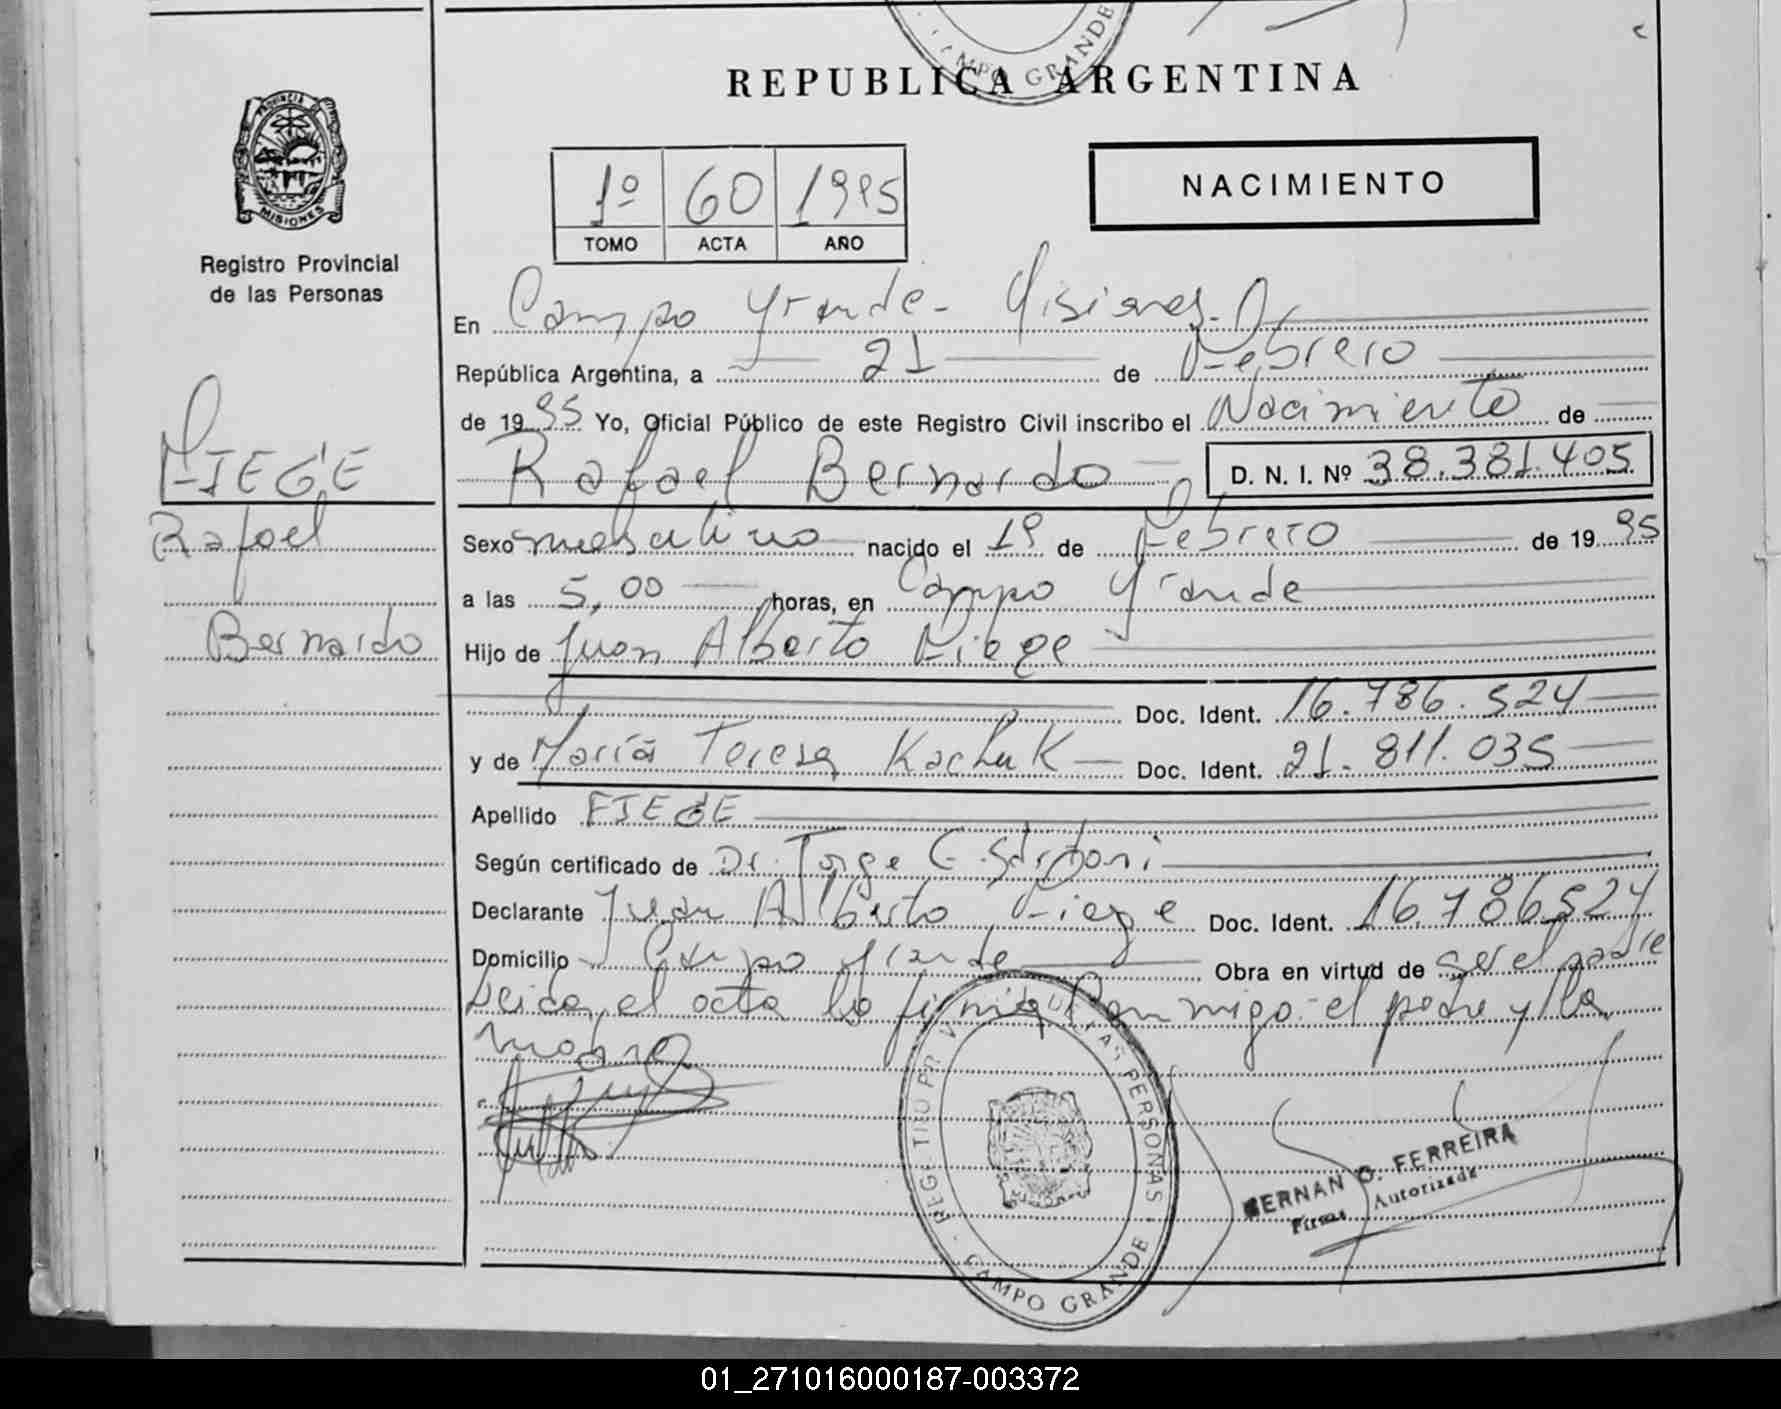 CAMPO GRANDE
REPUBLICA ARGENTINA
PROVINCIA DE
MISIONES
1º 60 1995
TOMO ACTA AÑO
NACIMIENTO
Registro Provincial
de las Personas
En Campo Grande - Misiones.
República Argentina, a 21 de Febrero
de 1995 Yo, Oficial Público de este Registro Civil inscribo el Nacimiento de
FIEGE
Rafael Bernardo D. N. I. Nº 38.381.405
Rafael
Bernardo
Sexo masculino nacido el 19 de Febrero de 1995
a las 5,00 horas, en Campo Grande
Hijo de Juan Alberto Fiege
Doc. Ident. 16.786.524
y de María Teresa Kachuk Doc. Ident. 21.811.035
Apellido FIEGE
Según certificado de Dr. Jorge C.
Declarante Juan Alberto Fiege Doc. Ident. 16.786524
Domicilio Campo Grande Obra en virtud de ser el padre
Leida el acta la firman conmigo el padre y la
madre
PERSONAS
CAMPO GRANDE
HERNAN O. FERREIRA
Firma Autorizada
01_271016000187-003372